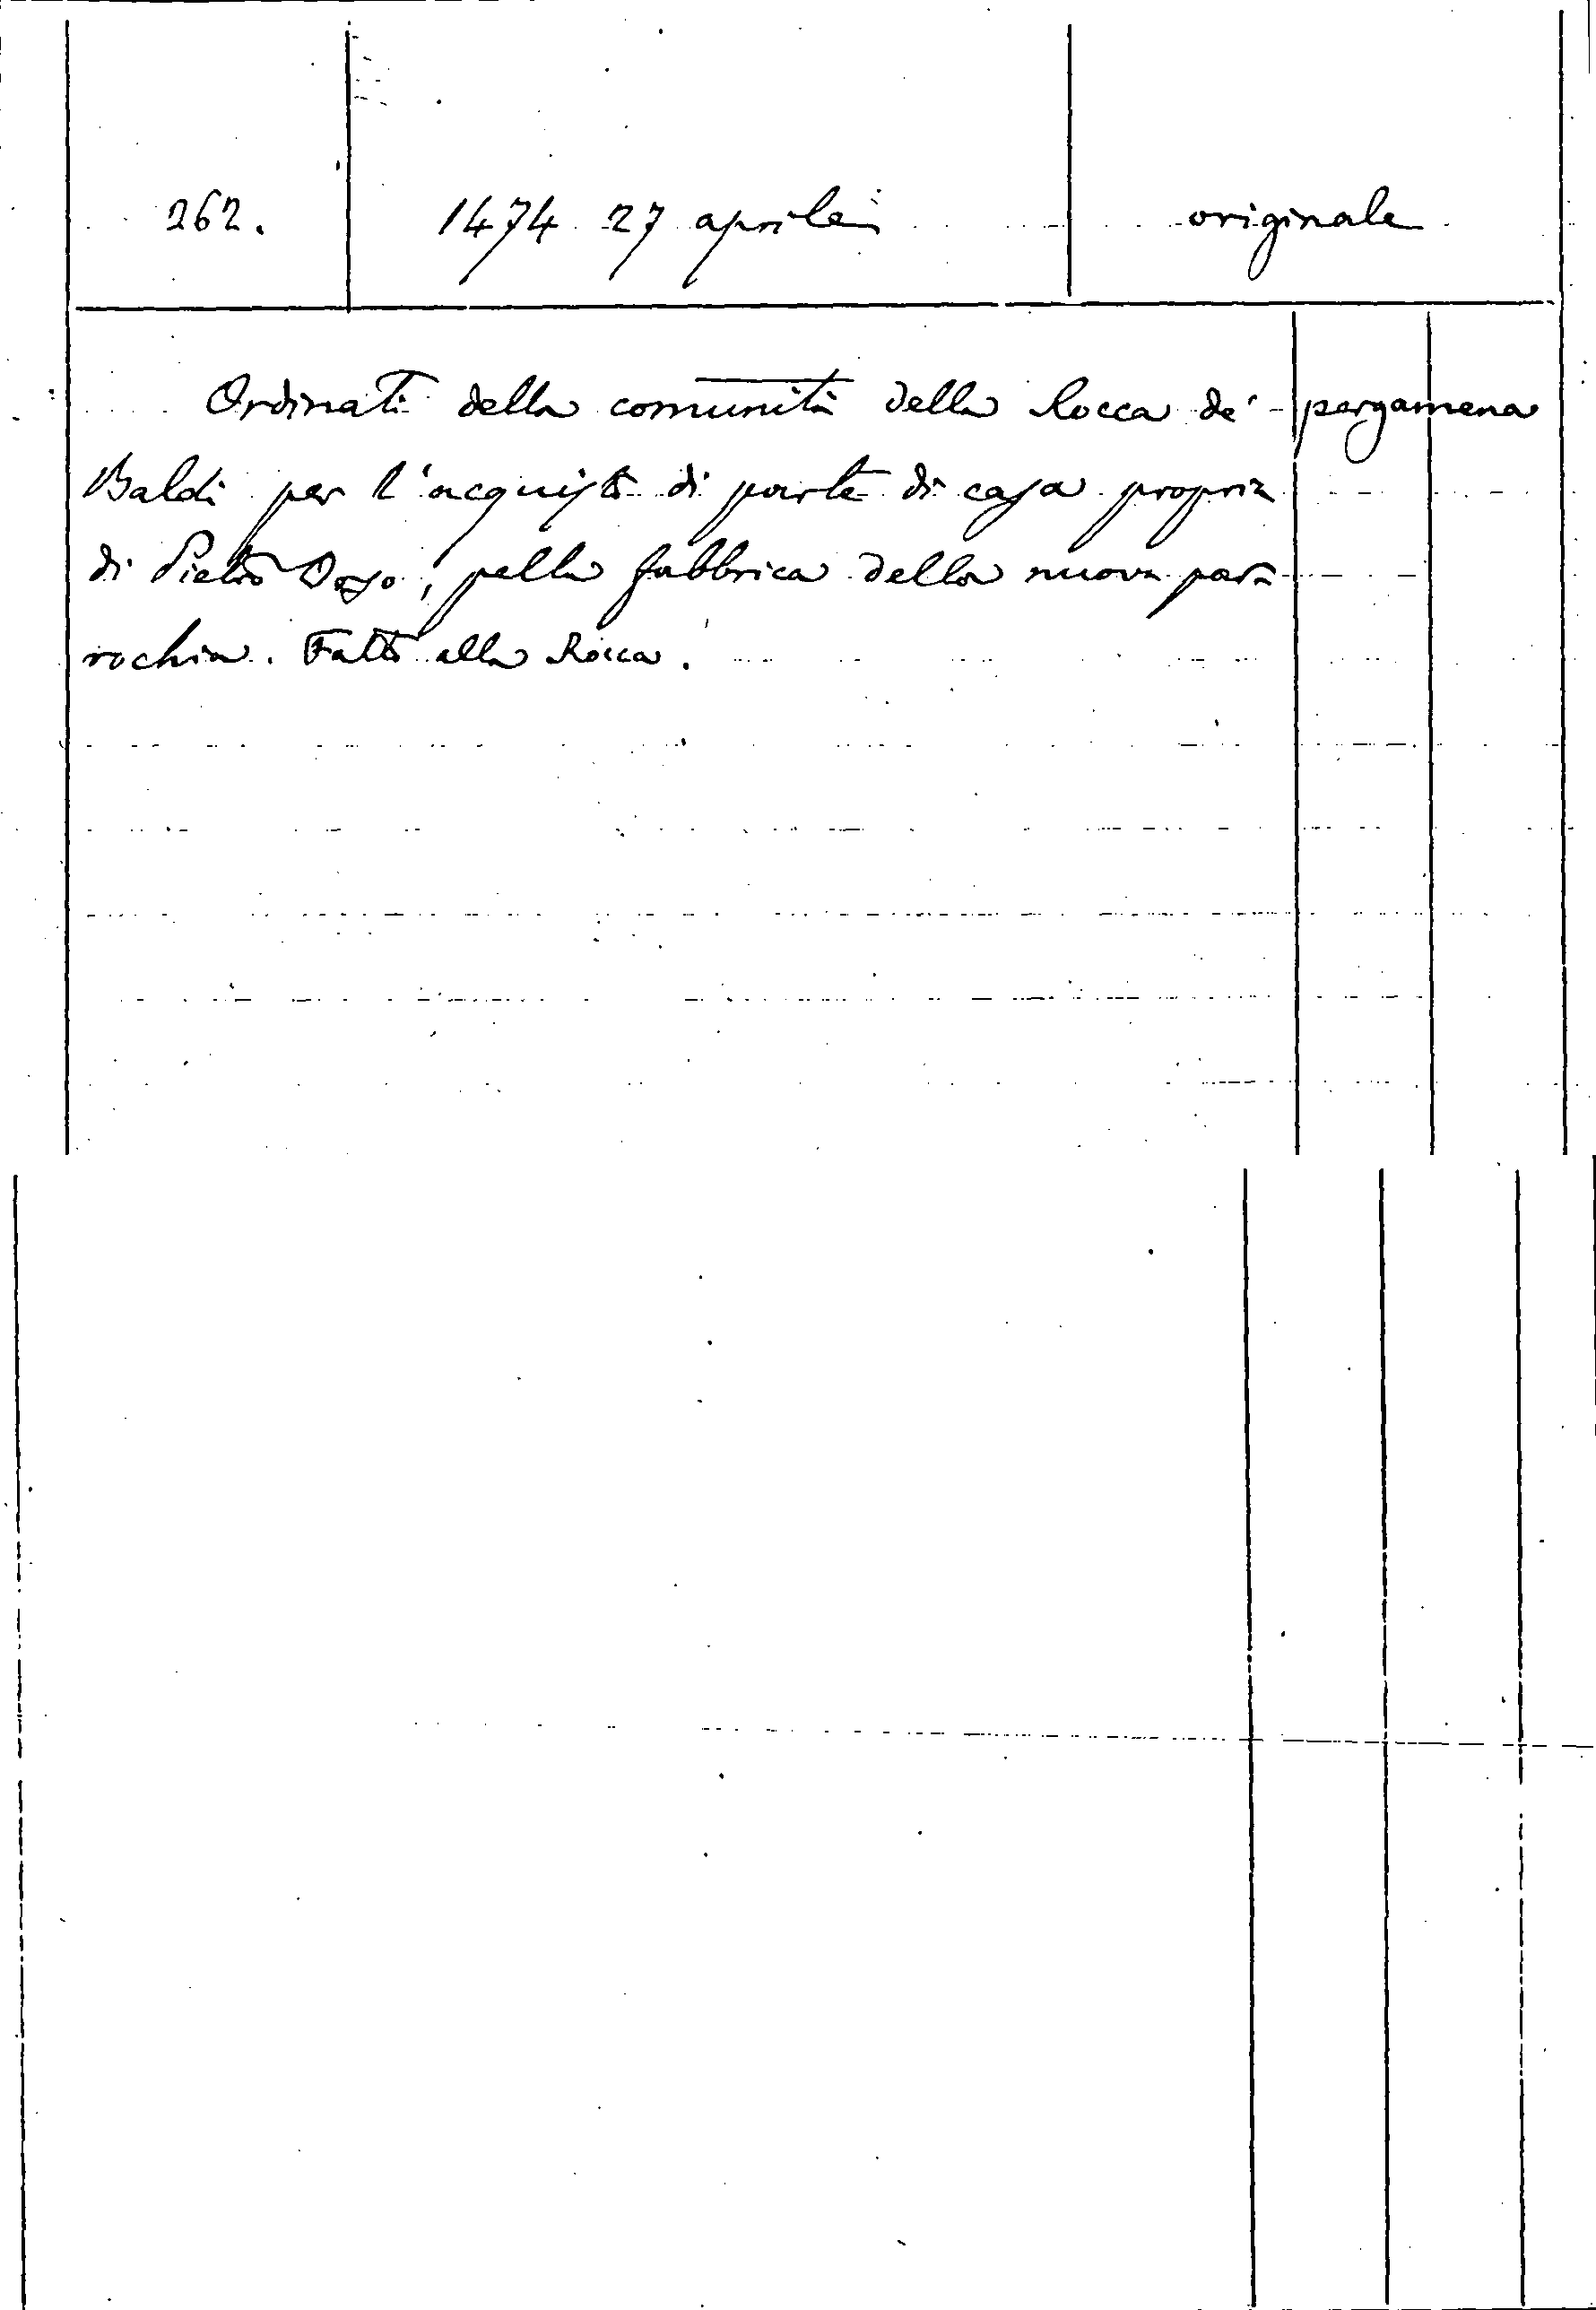 262. 1474 27 aprile originale
Ordinati della comunità della Rocca de' pergamena
Baldi per l'acquisto di parte di casa propria
di Pietro , pella fabbrica della nuova par=
rochia. Fatto alla Rocca.